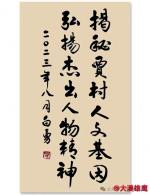 揭秘贾村人文基因
弘揚杰出人物精神
二〇二三年八月白勇
@大漠雄鹰